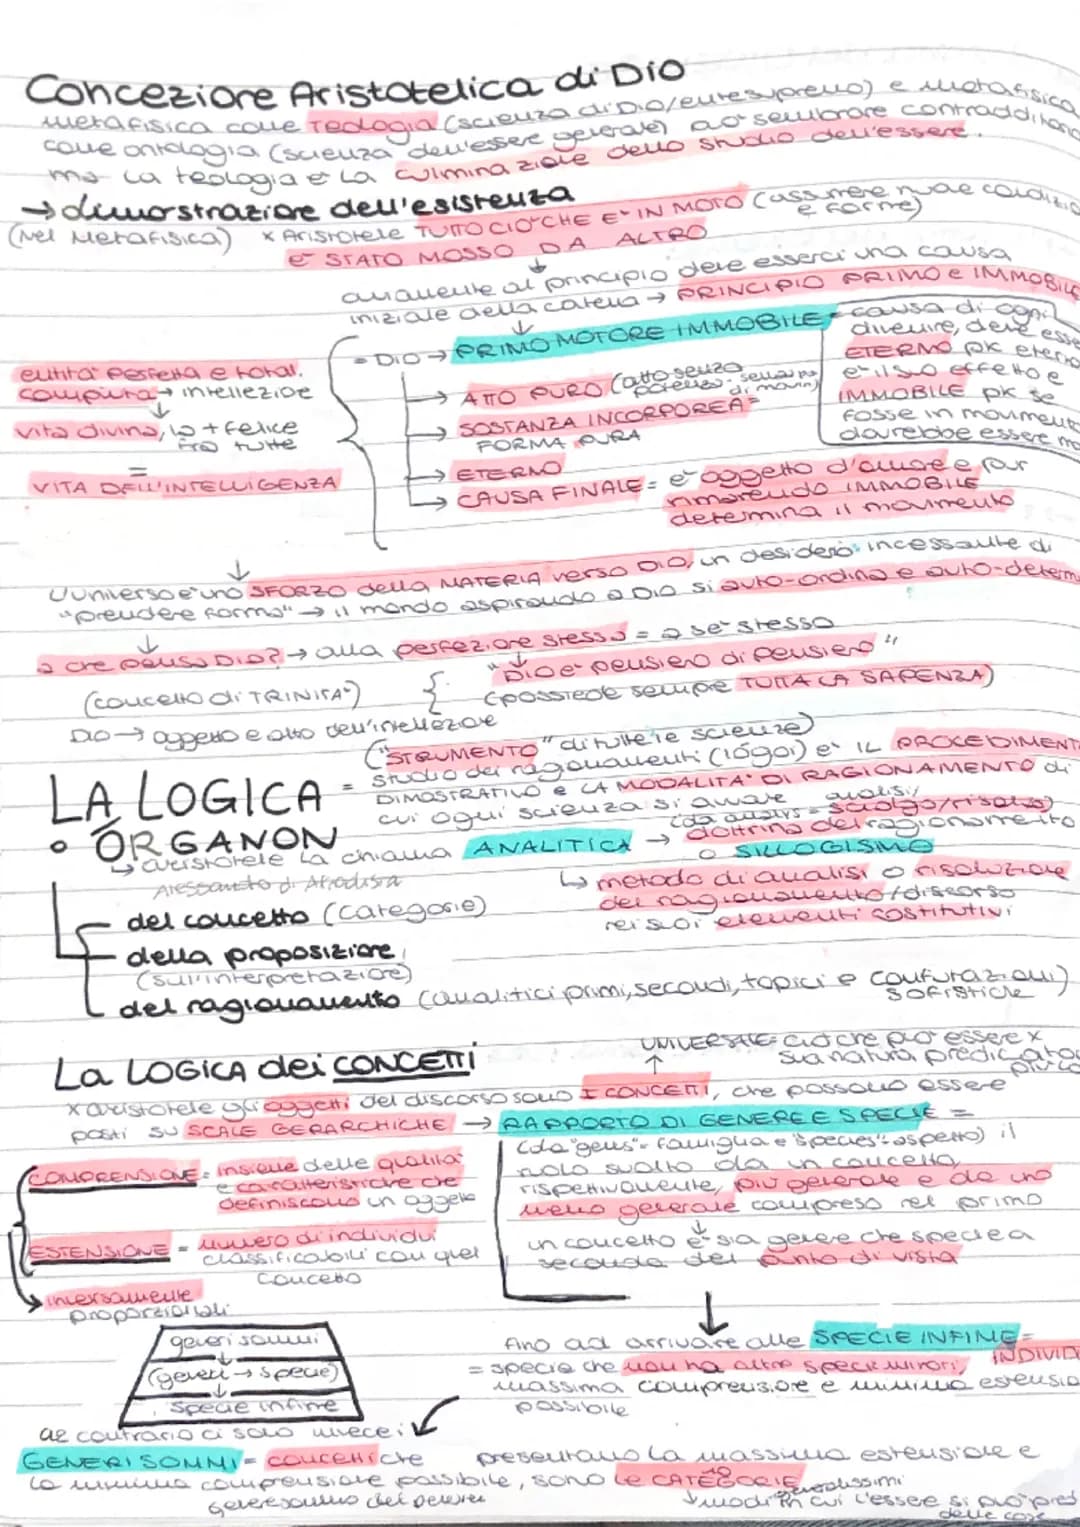 Concezione Aristotelica di Dio
metafisica come Teologia (scienza di Dio/ente supremo) e metafisica
come ontologia (scienza dell'essere generale) può sembrare contradditorio
ma la teologia è la culminazione dello studio dell'essere.
→ dimostrazione dell'esistenza
(Nel Metafisica) x Aristotele TUTTO CIO' CHE E' IN MOTO (assumere nuove condizio
e forme)
E' STATO MOSSO DA ALTRO
↓
ovviamente al principio deve esserci una causa
iniziale della catena → PRINCIPIO PRIMO e IMMOBILE
↓
= DIO → PRIMO MOTORE IMMOBILE = causa di ogni
divenire, deve esse
ETERNO pk eterno
è il suo effetto e
IMMOBILE pk se
fosse in movimento
dovrebbe essere mo
entità perfetta e total.
compiuta → intellezione
↓
vita divina, la + felice
fra tutte
=
VITA DELL'INTELLIGENZA
→ ATTO PURO (atto senza
potenza
→ SOSTANZA INCORPOREA =
FORMA PURA
→ ETERNO
→ CAUSA FINALE = è oggetto d'amore e pur
rimanendo IMMOBILE
determina il movimento
↓
L'universo è uno SFORZO della MATERIA verso DIO, un desiderio incessante di
"prendere forma" → il mondo aspirando a Dio si auto-ordina e auto-determ
↓
a che pensa DIO? → alla perfezione stessa = a se stesso
↓
"DIO è pensiero di pensiero"
(concetto di TRINITA') { (possiede sempre TUTTA LA SAPIENZA)
DIO → oggetto e atto dell'intellezione
("STRUMENTO" di tutte le scienze)
LA LOGICA = studio dei ragionamenti (lógoi) e' IL PROCEDIMENT
DIMOSTRATIVO e LA MODALITA' DI RAGIONAMENTO di
cui ogni scienza si avvale
analisi
= sciolgo/risolvo)
• ÓRGANON
↳ Aristotele la chiama ANALITICA → dottrina del ragionamento
o SILLOGISMO
Alessandro di Afrodisia
↳ metodo di analisi o risoluzione
del ragionamento/discorso
nei suoi elementi costitutivi
del concetto (categorie)
della proposizione
(sull'interpretazione)
del ragionamento (analitici primi, secondi, topici e confutazioni)
SOFISTICHE
UNIVERSALE: ciò che può essere x
sua natura predicato
di più co
↑
La LOGICA dei CONCETTI
x aristotele gli oggetti del discorso sono I CONCETTI, che possono essere
posti su SCALE GERARCHICHE → RAPPORTO DI GENERE E SPECIE =
(da "genus" = famiglia e "species" = aspetto) il
ruolo svolto da un concetto,
rispettivamente, più generale e da uno
meno generale compreso nel primo
↓
un concetto è sia genere che specie a
seconda del punto di vista
COMPRENSIONE = insieme delle qualità
e caratteristiche che
definiscono un oggetto
ESTENSIONE = numero di individui
classificabili con quel
concetto
→ inversamente
proporzionali
generi sommi
↓
(generi → specie)
↓
specie infime
↓
fino ad arrivare alle SPECIE INFIME =
INDIVID
= specie che non ha altre specie minori,
massima comprensione e minima estensio
possibile
al contrario ci sono invece i
GENERI SOMMI = concetti che presentano la massima estensione e
la minima comprensione possibile, sono le 10 CATEGORIE
generalissimi
↓ modi in cui l'essere si può pred
delle cose